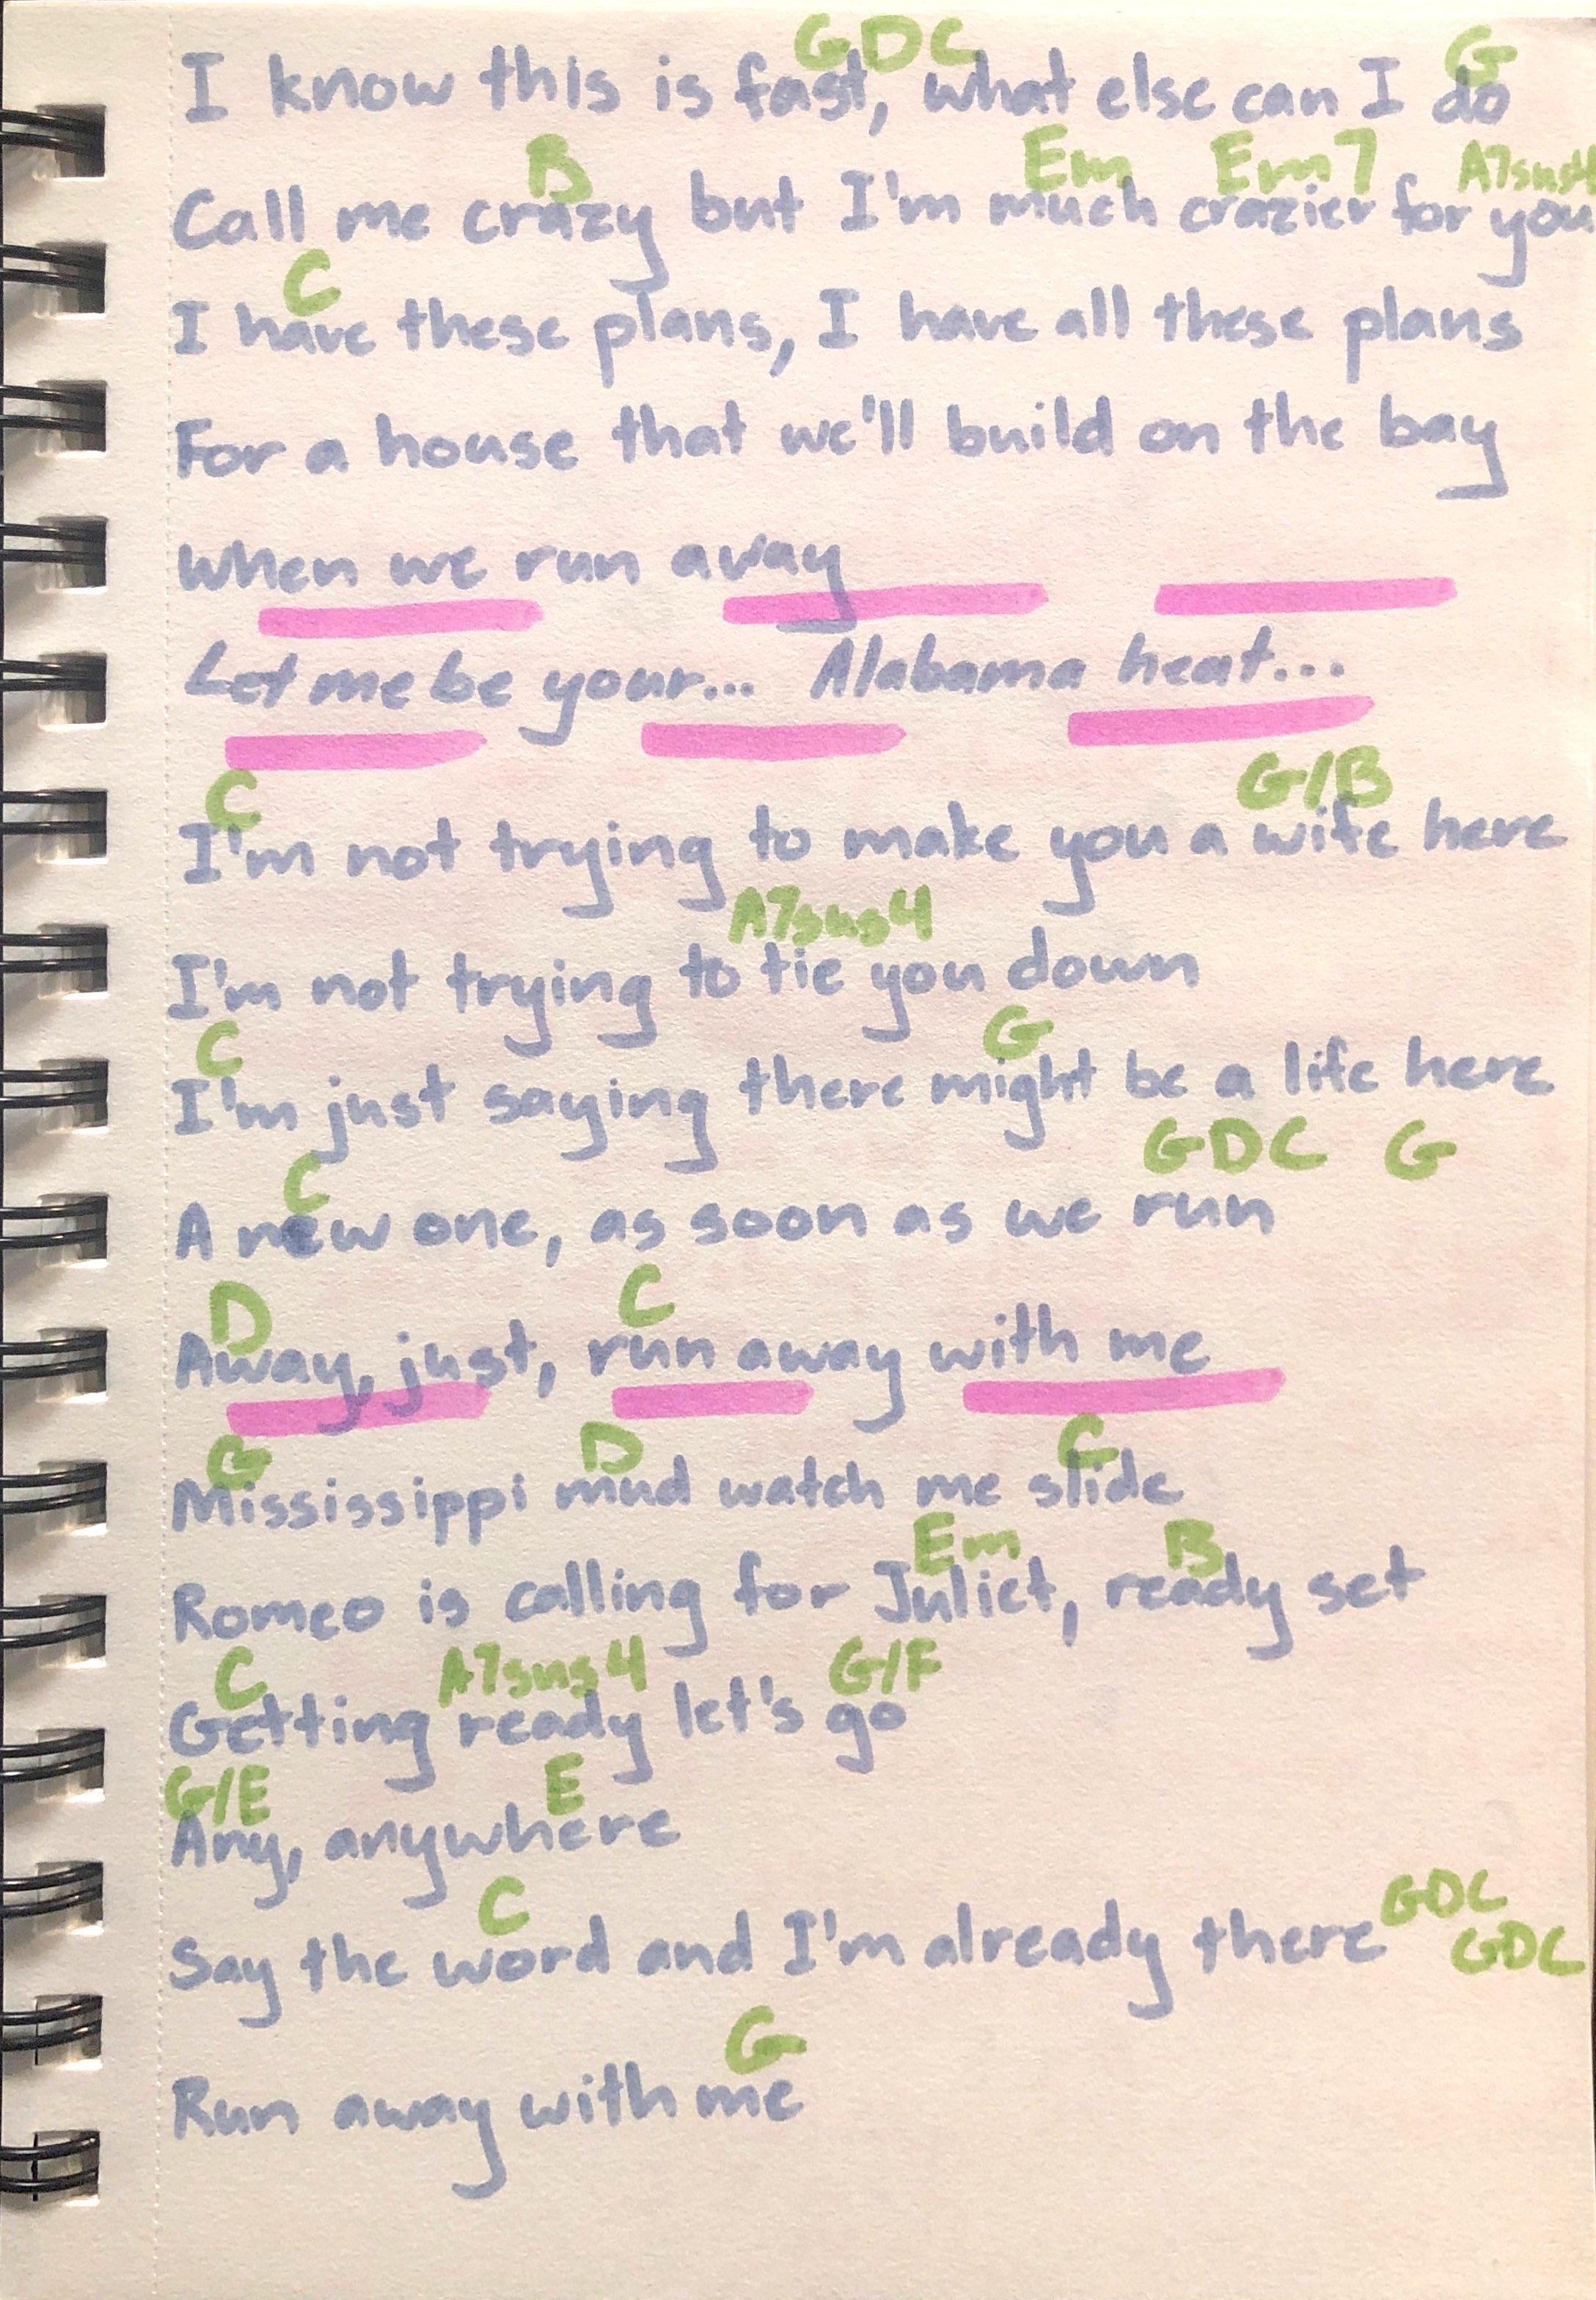 G D C G
I know this is fast, what else can I do
B Em Em7 A7sus4
Call me crazy but I'm much crazier for you
C
I have these plans, I have all these plans
For a house that we'll build on the bay
When we run away
Let me be your... Alabama heat...
C G/B
I'm not trying to make you a wife here
A7sus4
I'm not trying to tie you down
C G
I'm just saying there might be a life here
C GDC G
A new one, as soon as we run
D C
Away, just, run away with me
G D C
Mississippi mud watch me slide
Em B
Romeo is calling for Juliet, ready set
C A7sus4 G/F
Getting ready let's go
G/E E
Any, anywhere
C GDC
Say the word and I'm already there GDC
G
Run away with me